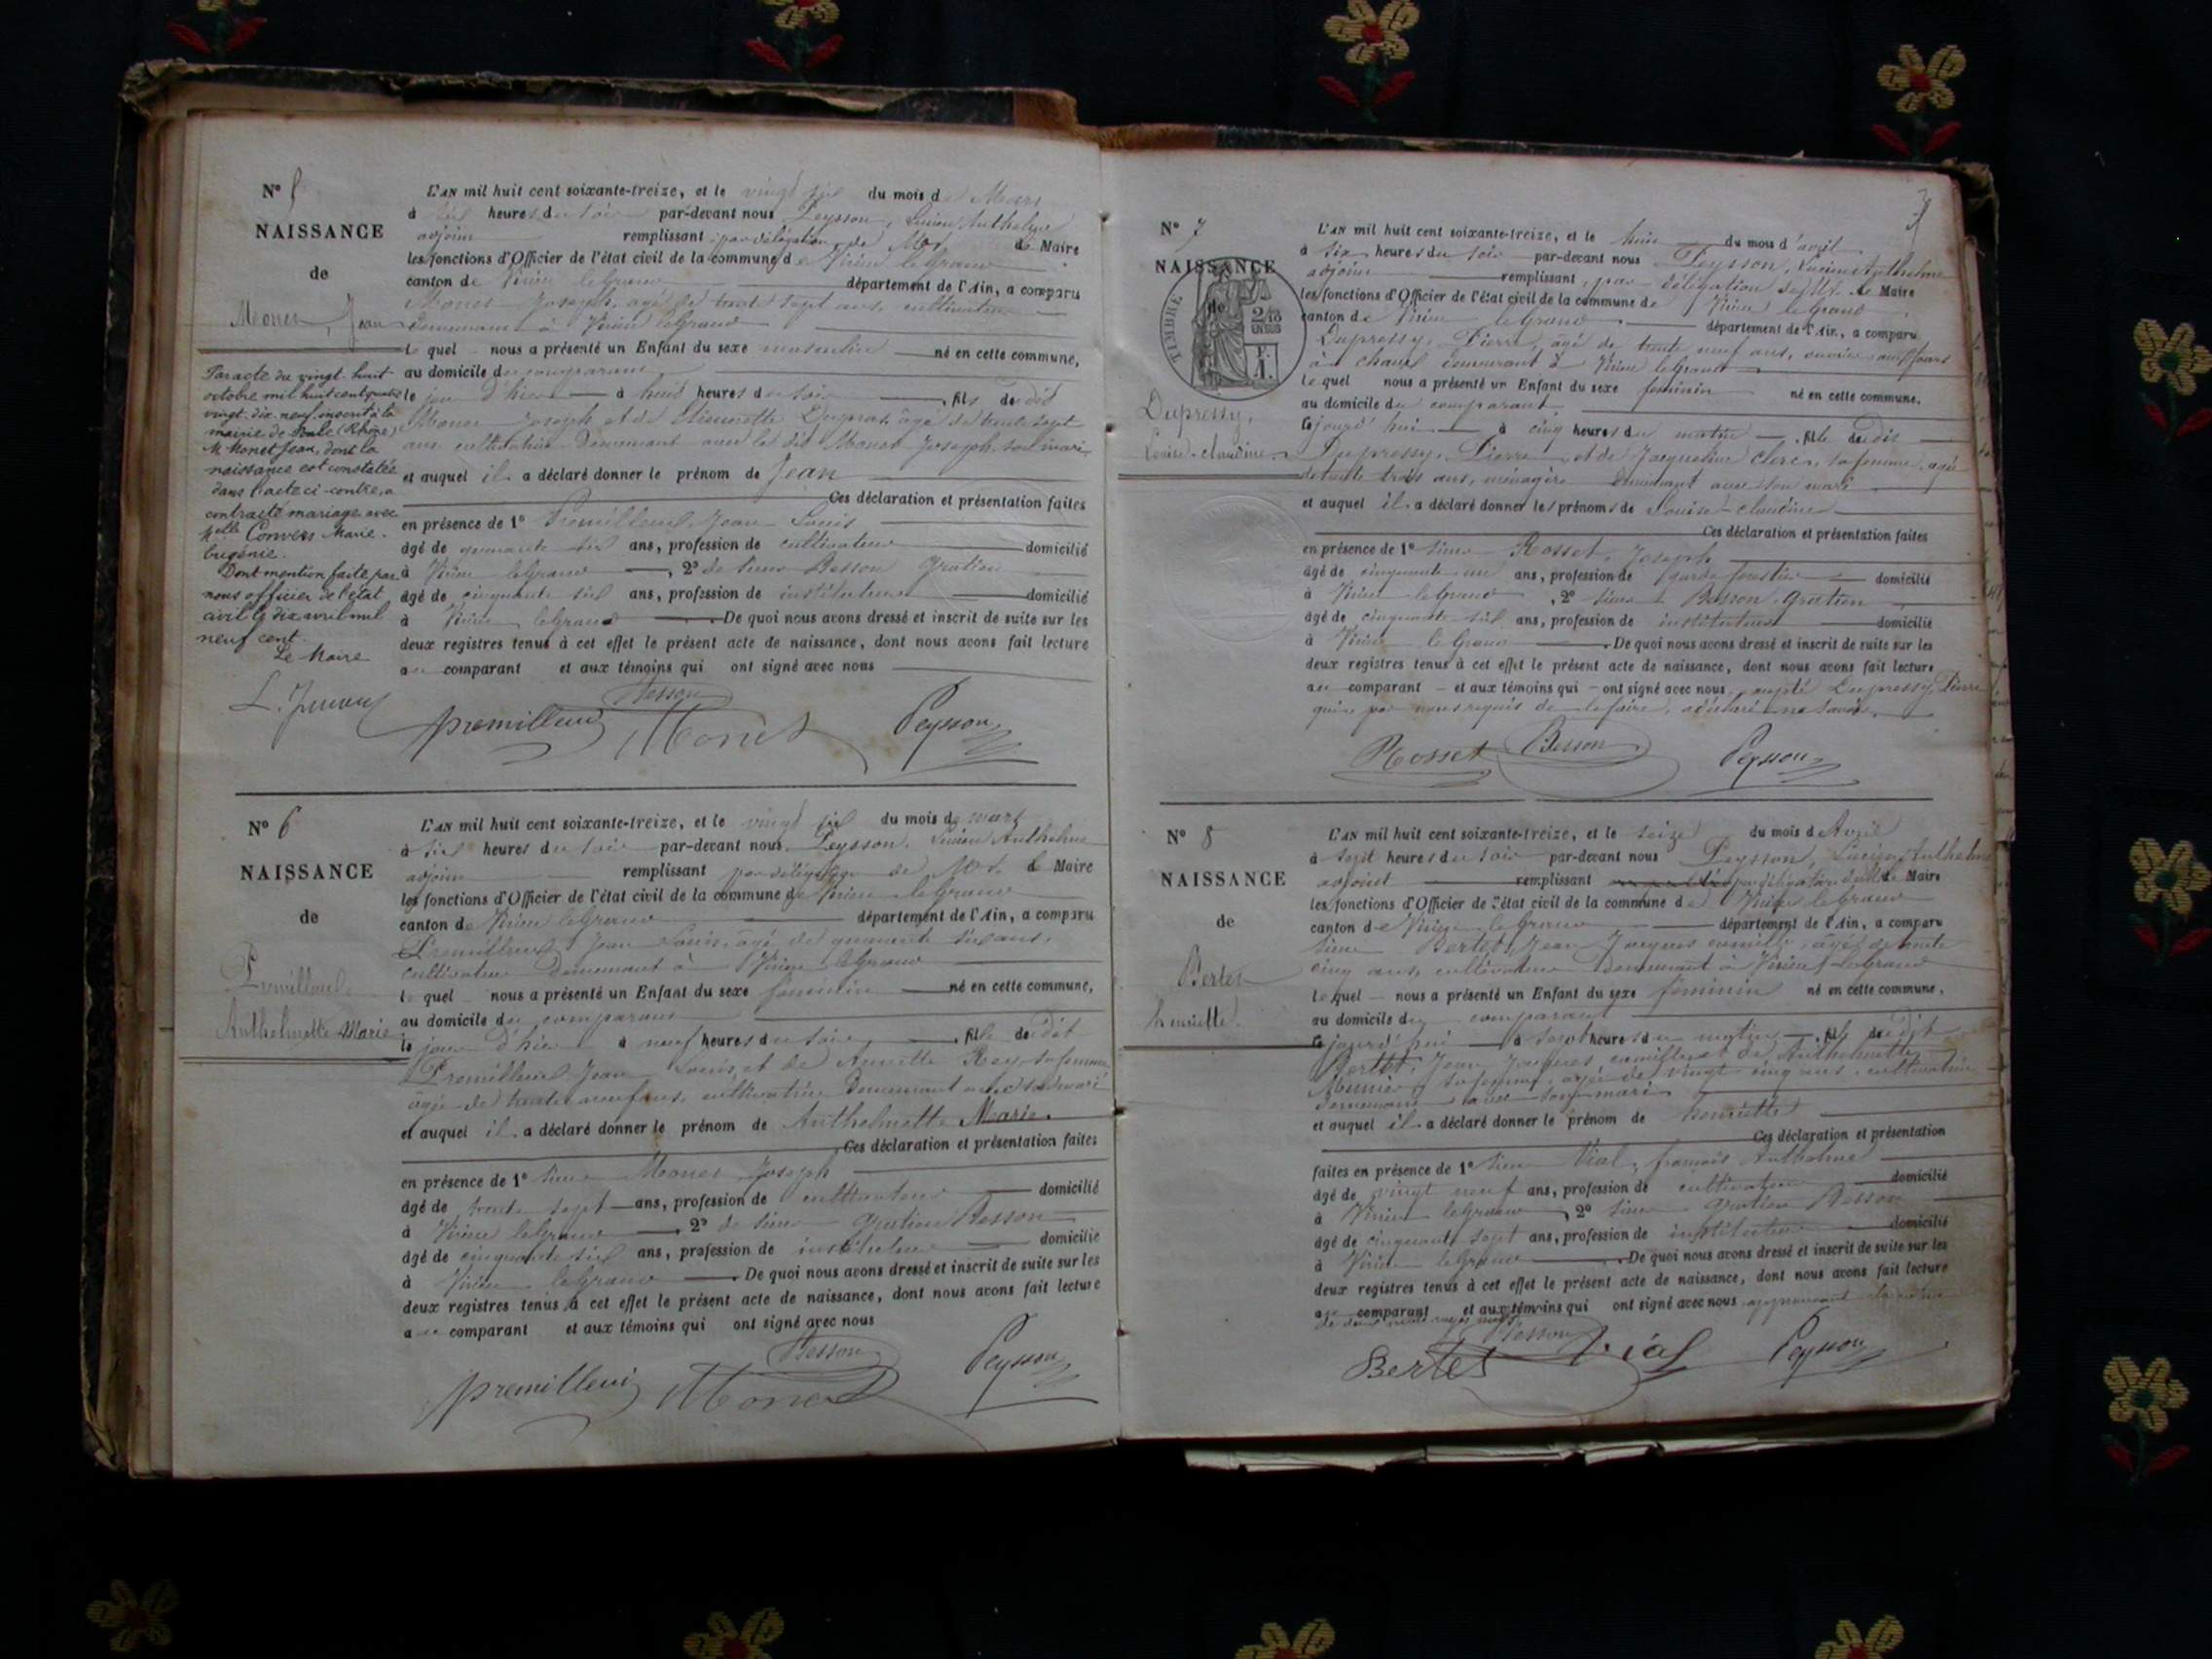 N° 5
NAISSANCE
de
Monet, Jean
Par acte du vingt-huit
octobre mil huit cent quatre
vingt-dix-neuf, inscrit à la
mairie de (Rhône)
M. Monet Jean, dont la
naissance est constatée
dans l'acte ci-contre, a
contracté mariage avec
Melle Convers Marie-
Eugénie.
Dont mention faite par
nous officier de l'état
civil le dix avril mil
neuf cent.
Le Maire
L'AN mil huit cent soixante-treize, et le vingt six du mois de Mars
à six heures du soir par-devant nous Peysson, Lucien Anthelme
adjoint remplissant par délégation de Mr. le Maire
les fonctions d'Officier de l'état civil de la commune de Virieu le Grand
canton de Virieu le Grand département de l'Ain, a comparu
Monet Joseph, agé de trente sept ans, cultivateur
demeurant à Virieu le Grand
le quel nous a présenté un Enfant du sexe masculin né en cette commune,
au domicile du comparant
le jour d'hier à huit heures du soir, fils du dit
Monet Joseph et de Pierrette âgée de trente sept
ans cultivatrice Demeurant avec le dit Monet Joseph son mari
et auquel il a déclaré donner le prénom de Jean
Ces déclaration et présentation faites
en présence de 1° Premillieux Jean Louis
âgé de quarante six ans, profession de cultivateur domicilié
à Virieu le Grand, 2° de sieur Besson Gratien
âgé de cinquante six ans, profession de instituteur domicilié
à Virieu le Grand De quoi nous avons dressé et inscrit de suite sur les
deux registres tenus à cet effet le présent acte de naissance, dont nous avons fait lecture
au comparant et aux témoins qui ont signé avec nous
Besson
premillieux Monet Peysson
N° 6
NAISSANCE
de
Premillieux
Anthelmette Marie
L'AN mil huit cent soixante-treize, et le vingt six du mois de mars
à six heures du soir par-devant nous Peysson, Lucien Anthelme
adjoint remplissant par délégation de Mr. le Maire
les fonctions d'Officier de l'état civil de la commune de Virieu le Grand
canton de Virieu le Grand département de l'Ain, a comparu
Premillieux Jean Louis, âgé de quarante six ans,
cultivateur demeurant à Virieu le Grand
le quel nous a présenté un Enfant du sexe féminin né en cette commune,
au domicile du comparant
le jour d'hier à neuf heures du soir, fille du dit
Premillieux Jean Louis, et de Annette Rey, sa femme,
âgée de trente neuf ans, cultivatrice Demeurant avec son mari
et auquel il a déclaré donner le prénom de Anthelmette Marie.
Ces déclaration et présentation faites
en présence de 1° sieur Monet Joseph
âgé de trente sept ans, profession de cultivateur domicilié
à Virieu le Grand, 2° de sieur Gratien Besson
âgé de cinquante six ans, profession de instituteur domicilié
à Virieu le Grand. De quoi nous avons dressé et inscrit de suite sur les
deux registres tenus à cet effet le présent acte de naissance, dont nous avons fait lecture
au comparant et aux témoins qui ont signé avec nous
Besson
premillieux Monet Peysson
N° 7
NAISSANCE
de
TIMBRE
Dupressy,
Louise-claudine
L'AN mil huit cent soixante-treize, et le huit du mois d'avril
à six heures du soir par-devant nous Peysson, Lucien Anthelme
adjoint remplissant, par délégation de Mr. le Maire
les fonctions d'Officier de l'état civil de la commune de Virieu le Grand
canton de Virieu le Grand département de l'Ain, a comparu
Dupressy, Pierre, âgé de trente neuf ans, ouvrier aux fours
à chaux demeurant à Virieu le Grand
le quel nous a présenté un Enfant du sexe féminin né en cette commune,
au domicile du comparant
cejourd'hui à cinq heures du matin, fille du dit
Dupressy, Pierre et de Jacqueline Clerc, sa femme, agée
de trente trois ans, ménagère Demeurant avec son mari
et auquel il a déclaré donner les prénoms de Louise-claudine
Ces déclaration et présentation faites
en présence de 1° sieur Rosset, Joseph
âgé de cinquante un ans, profession de garde forestier domicilié
à Virieu le Grand, 2° sieur Besson Gratien
âgé de cinquante six ans, profession de instituteur domicilié
à Virieu le Grand. De quoi nous avons dressé et inscrit de suite sur les
deux registres tenus à cet effet le présent acte de naissance, dont nous avons fait lecture
au comparant et aux témoins qui ont signé avec nous, excepté Dupressy, Pierre
qui par nous requis de le faire, a déclaré ne savoir.
Rosset Besson Peysson
N° 8
NAISSANCE
de
Bertet
henriette
L'AN mil huit cent soixante-treize, et le seize du mois d'Avril
à sept heures du soir par-devant nous Peysson, Lucien Anthelme
adjoint remplissant par délégation de Mr. le Maire
les fonctions d'Officier de l'état civil de la commune de Virieu le Grand
canton de Virieu le Grand département de l'Ain, a comparu
sieur Bertet, Jean Jacques camille, âgé de trente
cinq ans, cultivateur Demeurant à Virieu le Grand
le quel nous a présenté un Enfant du sexe féminin né en cette commune,
au domicile du comparant
cejourd'hui à sept heures du matin, fille du dit
Bertet, Jean Jacques camille et de Anthelmette
Meunier, sa femme, agée de vingt cinq ans, cultivatrice
demeurant avec son mari
et auquel il a déclaré donner le prénom de henriette
Ces déclaration et présentation
faites en présence de 1° sieur Vial, françois Anthelme
âgé de vingt neuf ans, profession de cultivateur domicilié
à Virieu le Grand, 2° sieur Gratien Besson
âgé de cinquante sept ans, profession de instituteur domicilié
à Virieu le Grand. De quoi nous avons dressé et inscrit de suite sur les
deux registres tenus à cet effet le présent acte de naissance, dont nous avons fait lecture
au comparant et aux témoins qui ont signé avec nous
Besson
Bertet Vial Peysson